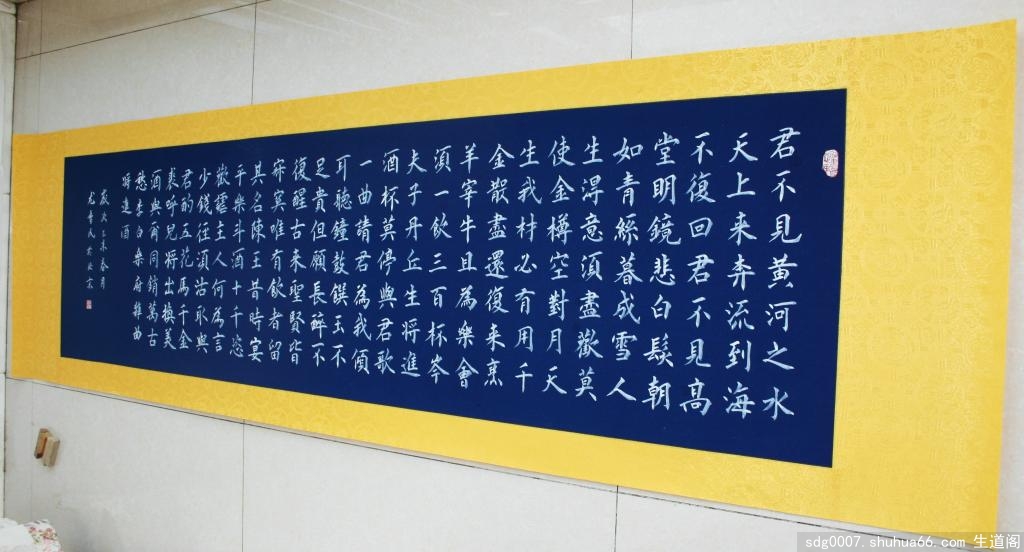 君不見黃河之水
天上来奔流到海
不復回君不見高
堂明鏡悲白髮朝
如青絲暮成雪人
生得意須盡歡莫
使金樽空對月天
生我材必有用千
金散盡還復来烹
羊宰牛且為樂會
須一飲三百杯岑
夫子丹丘生將進
酒杯莫停與君歌
一曲請君為我傾
耳聽鐘鼓饌玉不
足貴但願長醉不
復醒古来聖賢皆
寂寞唯有飲者留
其名陳王昔時宴
平樂斗酒十千恣
歡謔主人何為言
少錢徑須沽取與
君酌五花馬千金
裘呼兒將出換美
酒與爾同銷萬古
愁李白樂府雜曲
將進酒
歲次乙未春月
sdg0007.shuhua66.com 生道阁